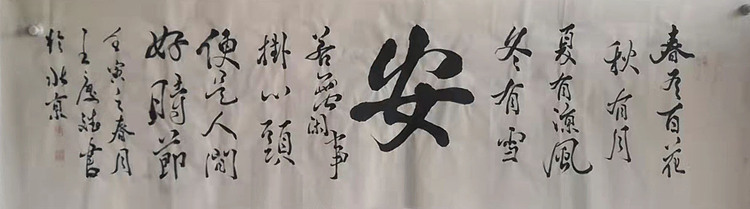 春有百花
秋有月
夏有凉風
冬有雪
安
若無閑事
掛心頭
便是人間
好時節
壬寅之春月
書
於北京